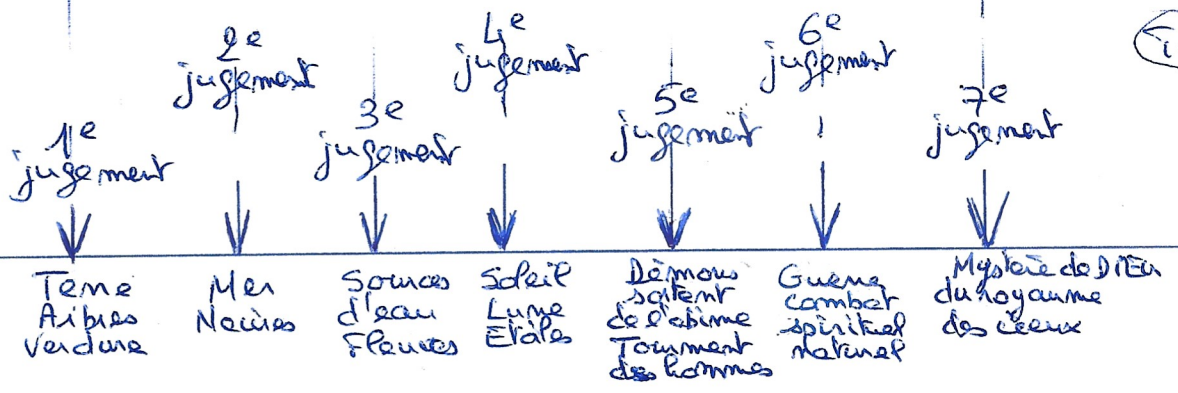 1e
jugement
2e
jugement
3e
jugement
4e
jugement
5e
jugement
6e
jugement
7e
jugement
Terre
Arbres
verdure
Mer
Navires
Sources
d'eau
Fleuves
Soleil
Lune
Etoiles
Démons
sortent
de l'abîme
Tourment
des hommes
Guerre
combat
spirituel
naturel
Mystère de DIEU
du royaume
des cieux